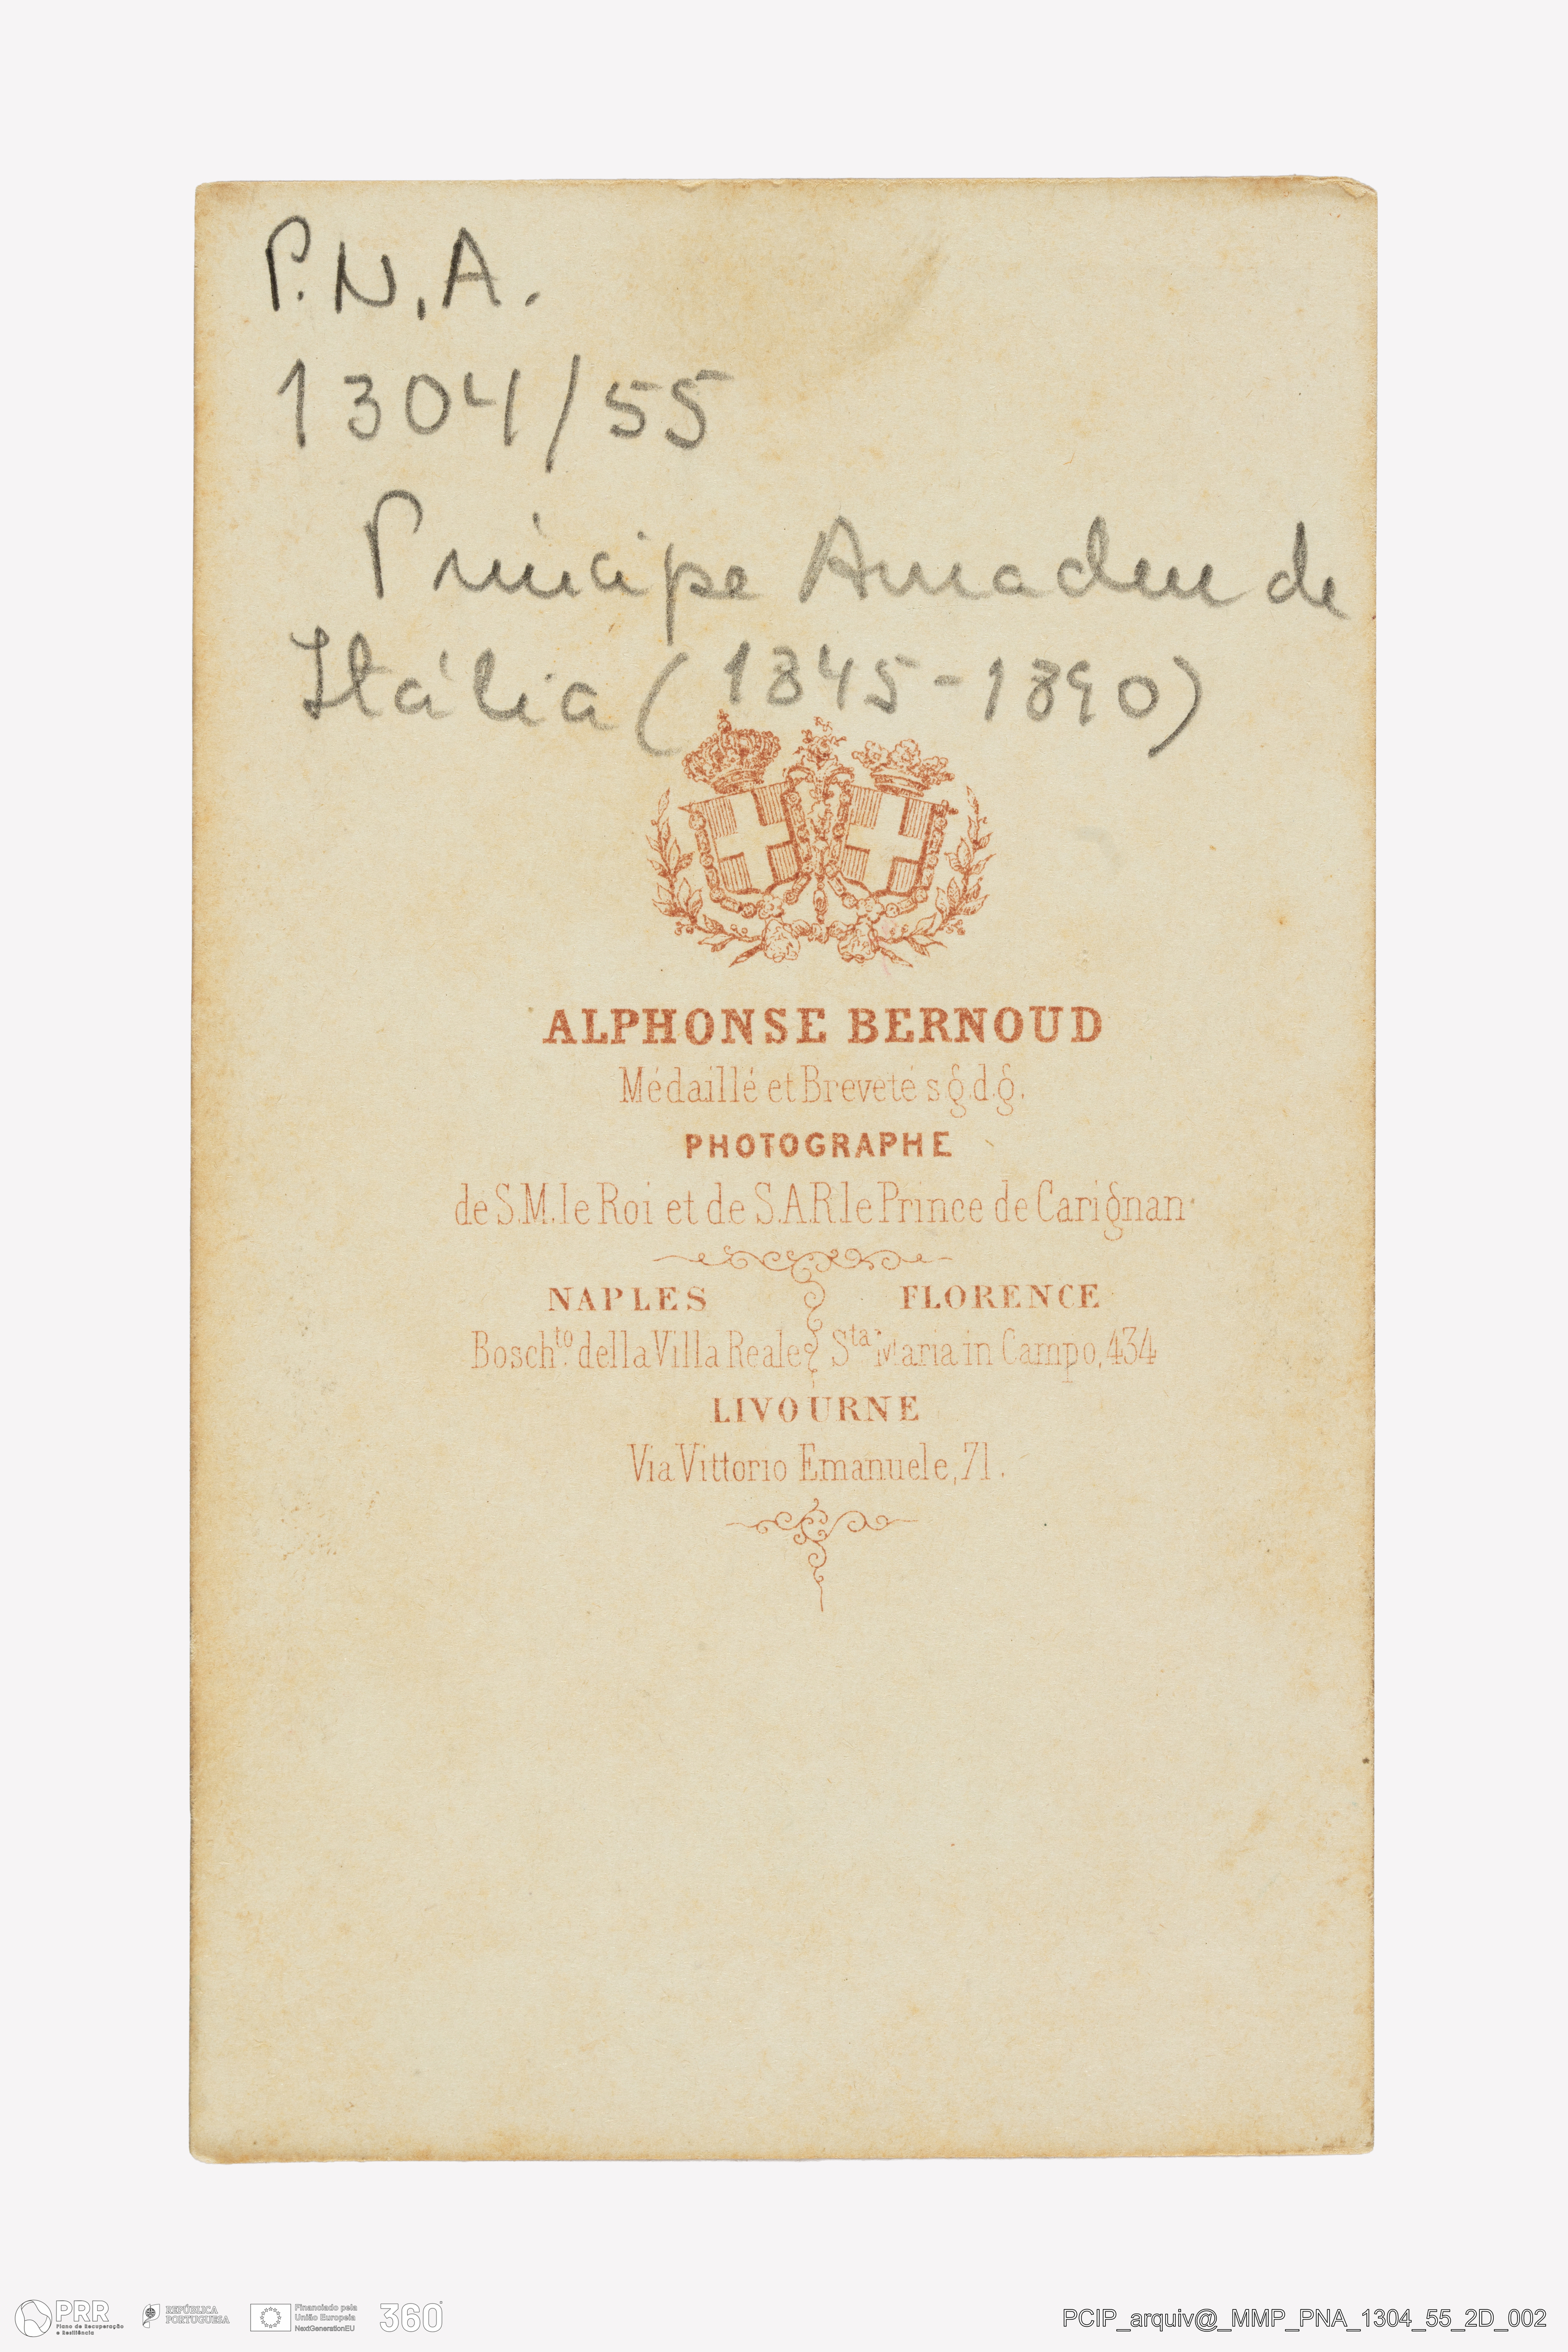 P.N.A.
1304/55
Príncipe Amadeu de
Itália (1845-1890)
ALPHONSE BERNOUD
Médaillé et Breveté s.g.d.g.
PHOTOGRAPHE
de S.M. le Roi et de S.A.R. le Prince de Carignan
NAPLES FLORENCE
Bosch.to della Villa Reale Sta Maria in Campo, 434
LIVOURNE
Via Vittorio Emanuele, 71.
PRR
Plano de Recuperação
e Resiliência
REPÚBLICA
PORTUGUESA
Financiado pela
União Europeia
NextGenerationEU
360°
PCIP_arquiv@_MMP_PNA_1304_55_2D_002